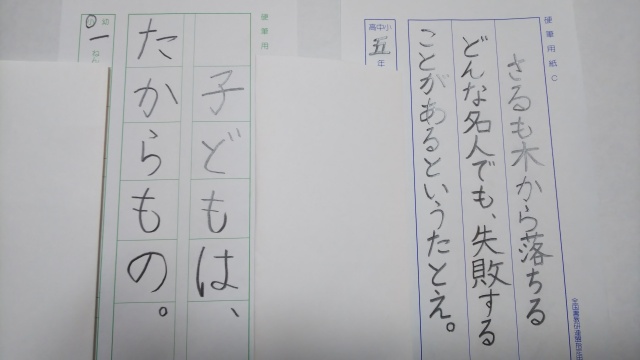 硬筆用紙C
高中小
五年
さるも木から落ちる
どんな名人でも、失敗する
ことがあるというたとえ。
硬筆用
幼
一ねん
子どもは、
たからもの。